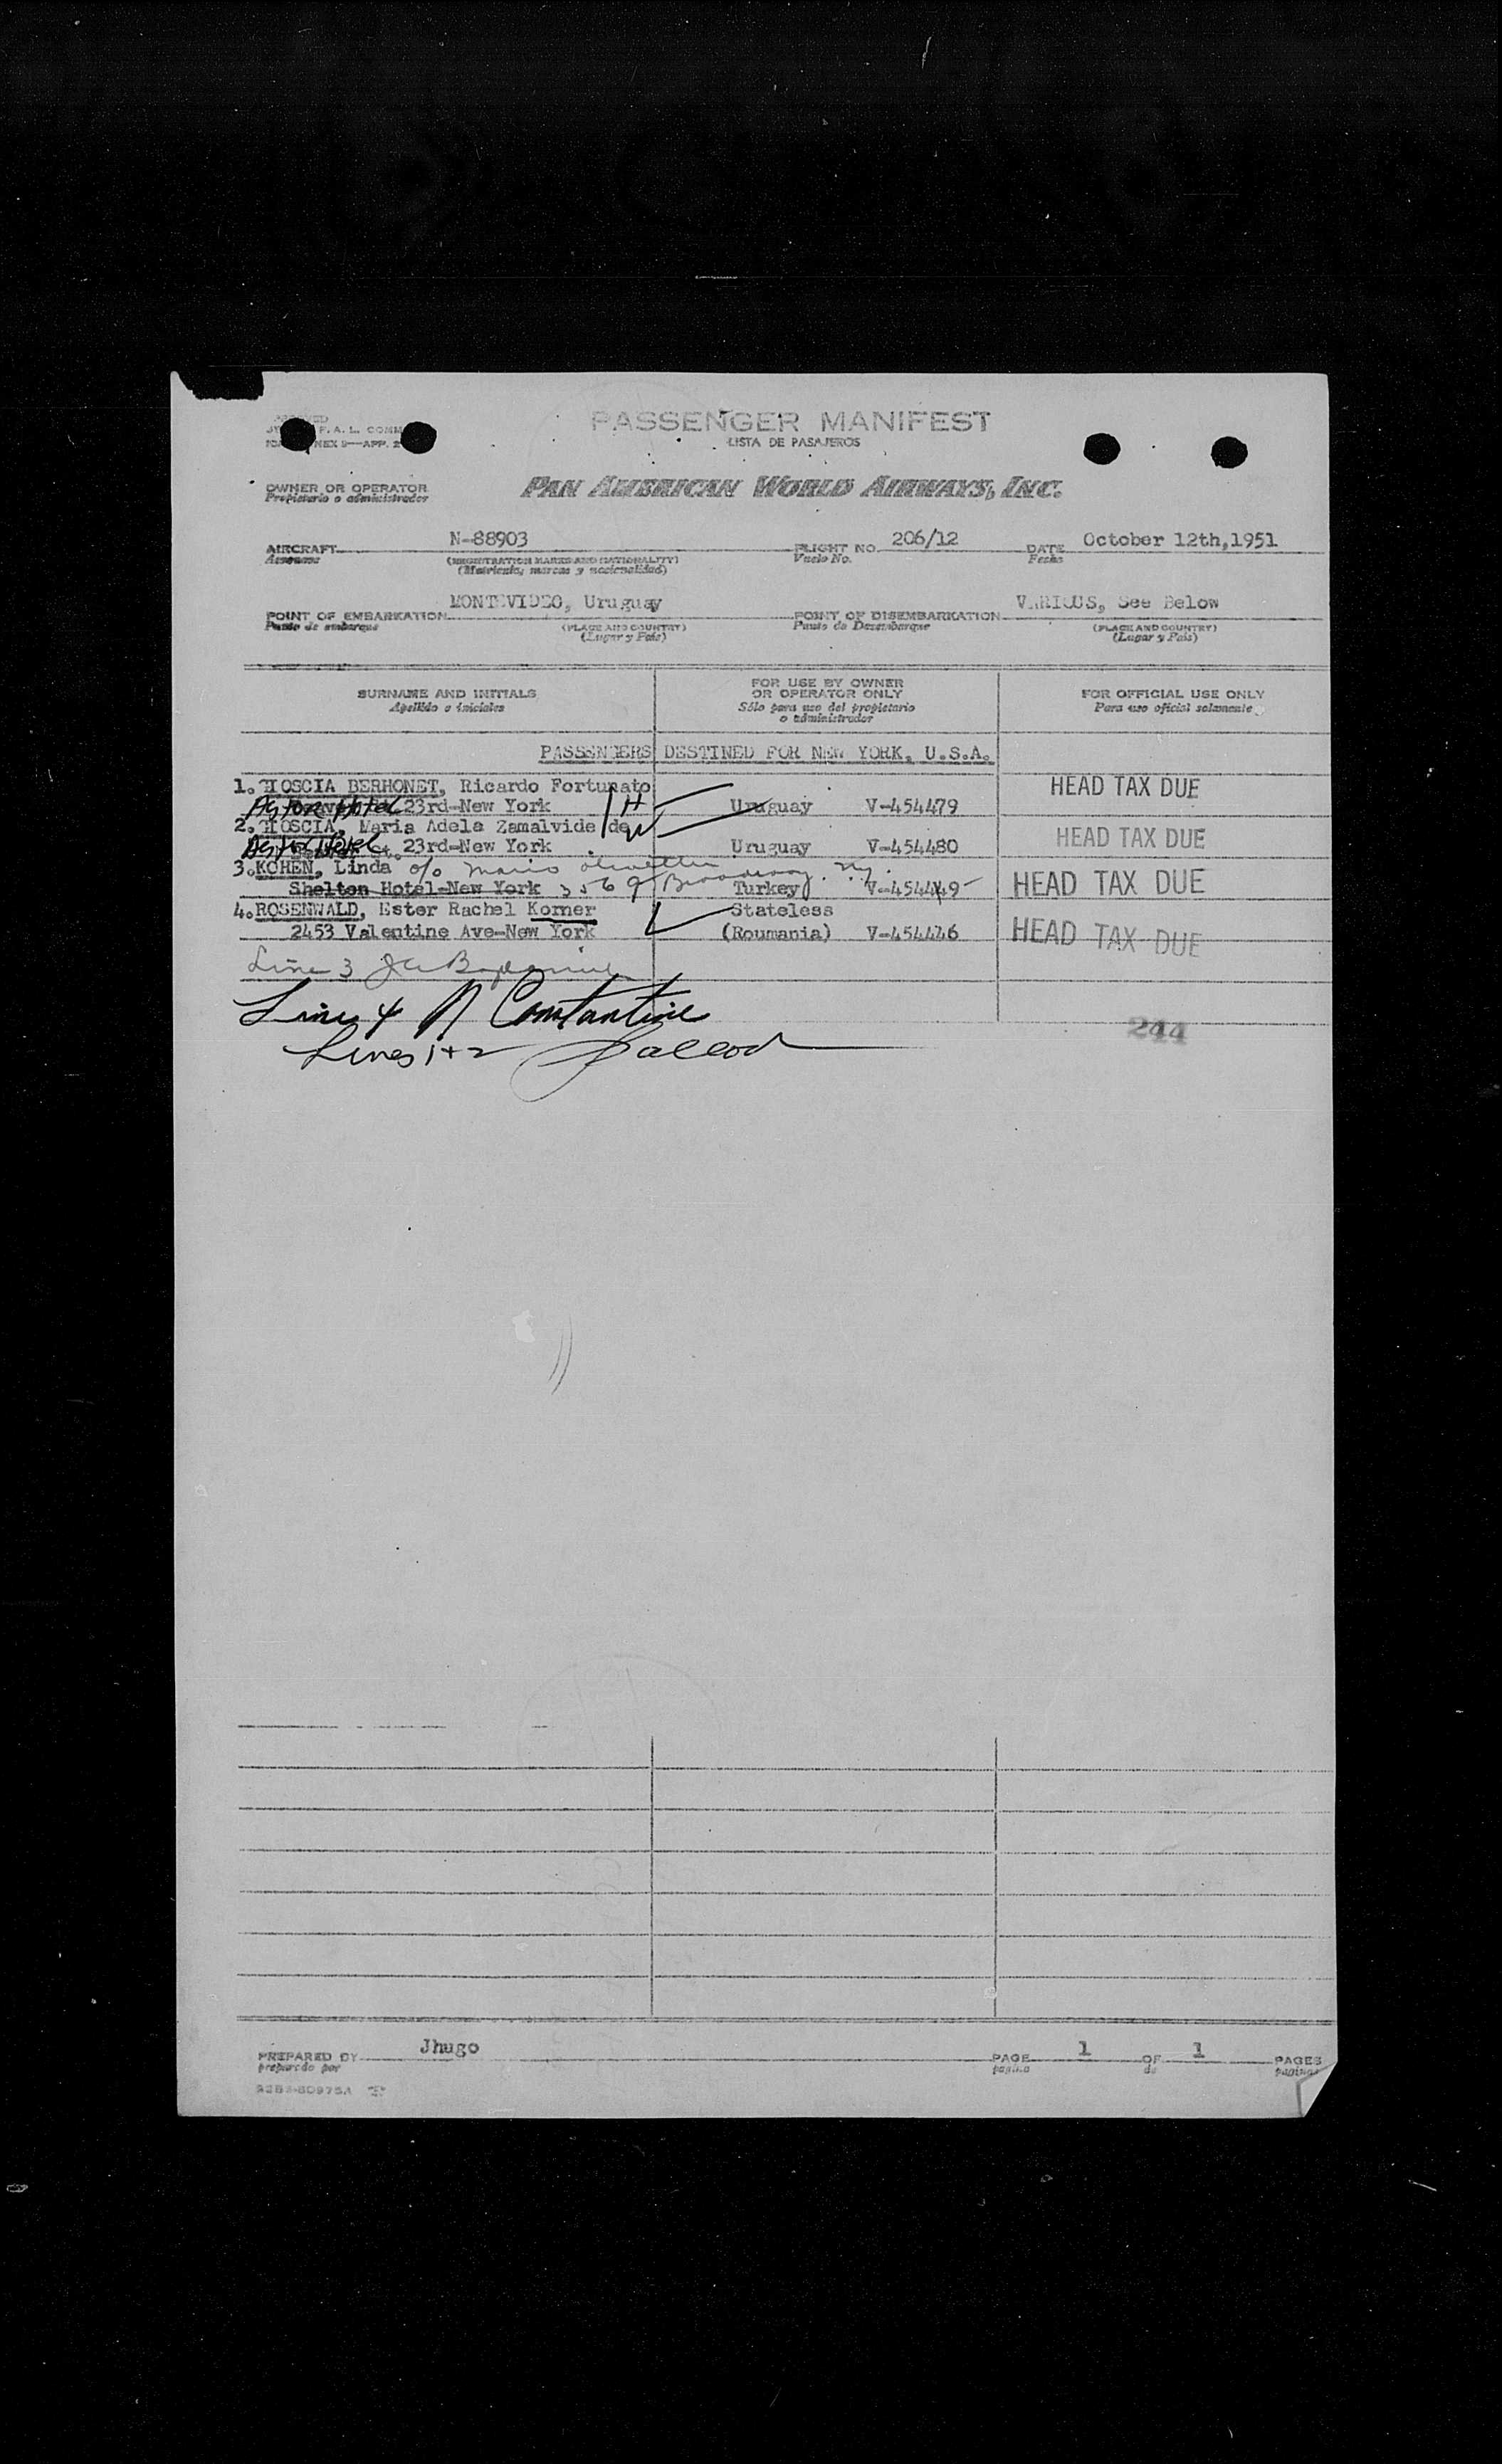 PASSENGER MANIFEST
F. A. L. COMM
LISTA DE PASAJEROS
NEX 9—APP. 2
OWNER OR OPERATOR
Propietario o administrador
PAN AMERICAN WORLD AIRWAYS, INC.
AIRCRAFT N-88903 FLIGHT NO. 206/12 DATE October 12th,1951
Aeronave (REGISTRATION MARKS AND NATIONALITY) Vuelo No. Fecha
(Matrícula, marcas y nacionalidad)
POINT OF EMBARKATION MONTEVIDEO, Uruguay POINT OF DISEMBARKATION VARIOUS, See Below
Punto de embarque (PLACE AND COUNTRY) Punto de Desembarque (PLACE AND COUNTRY)
(Lugar y País) (Lugar y País)
SURNAME AND INITIALS FOR USE BY OWNER OR OPERATOR ONLY FOR OFFICIAL USE ONLY
Apellido o iniciales Sólo para uso del propietario o administrador Para uso oficial solamente
PASSENGERS DESTINED FOR NEW YORK, U.S.A.
1. HOSCIA BERHONET, Ricardo Fortunato HEAD TAX DUE
Astor Hotel 23rd-New York H Uruguay V-454479
2. HOSCIA, Maria Adela Zamalvide de W HEAD TAX DUE
Astor Hotel St. 23rd-New York Uruguay V-454480
3. KOHEN, Linda c/o Mario
Shelton Hotel-New York 3569 Broadway. N.Y. Turkey V-454449 HEAD TAX DUE
4. ROSENWALD, Ester Rachel Korner Stateless
2453 Valentine Ave-New York (Roumania) V-454446 HEAD TAX DUE
Line 3
Line 4 N Constantine
244
Lines 1+2
PREPARED BY Jhugo PAGE 1 OF 1 PAGES
preparado por pagina de paginas